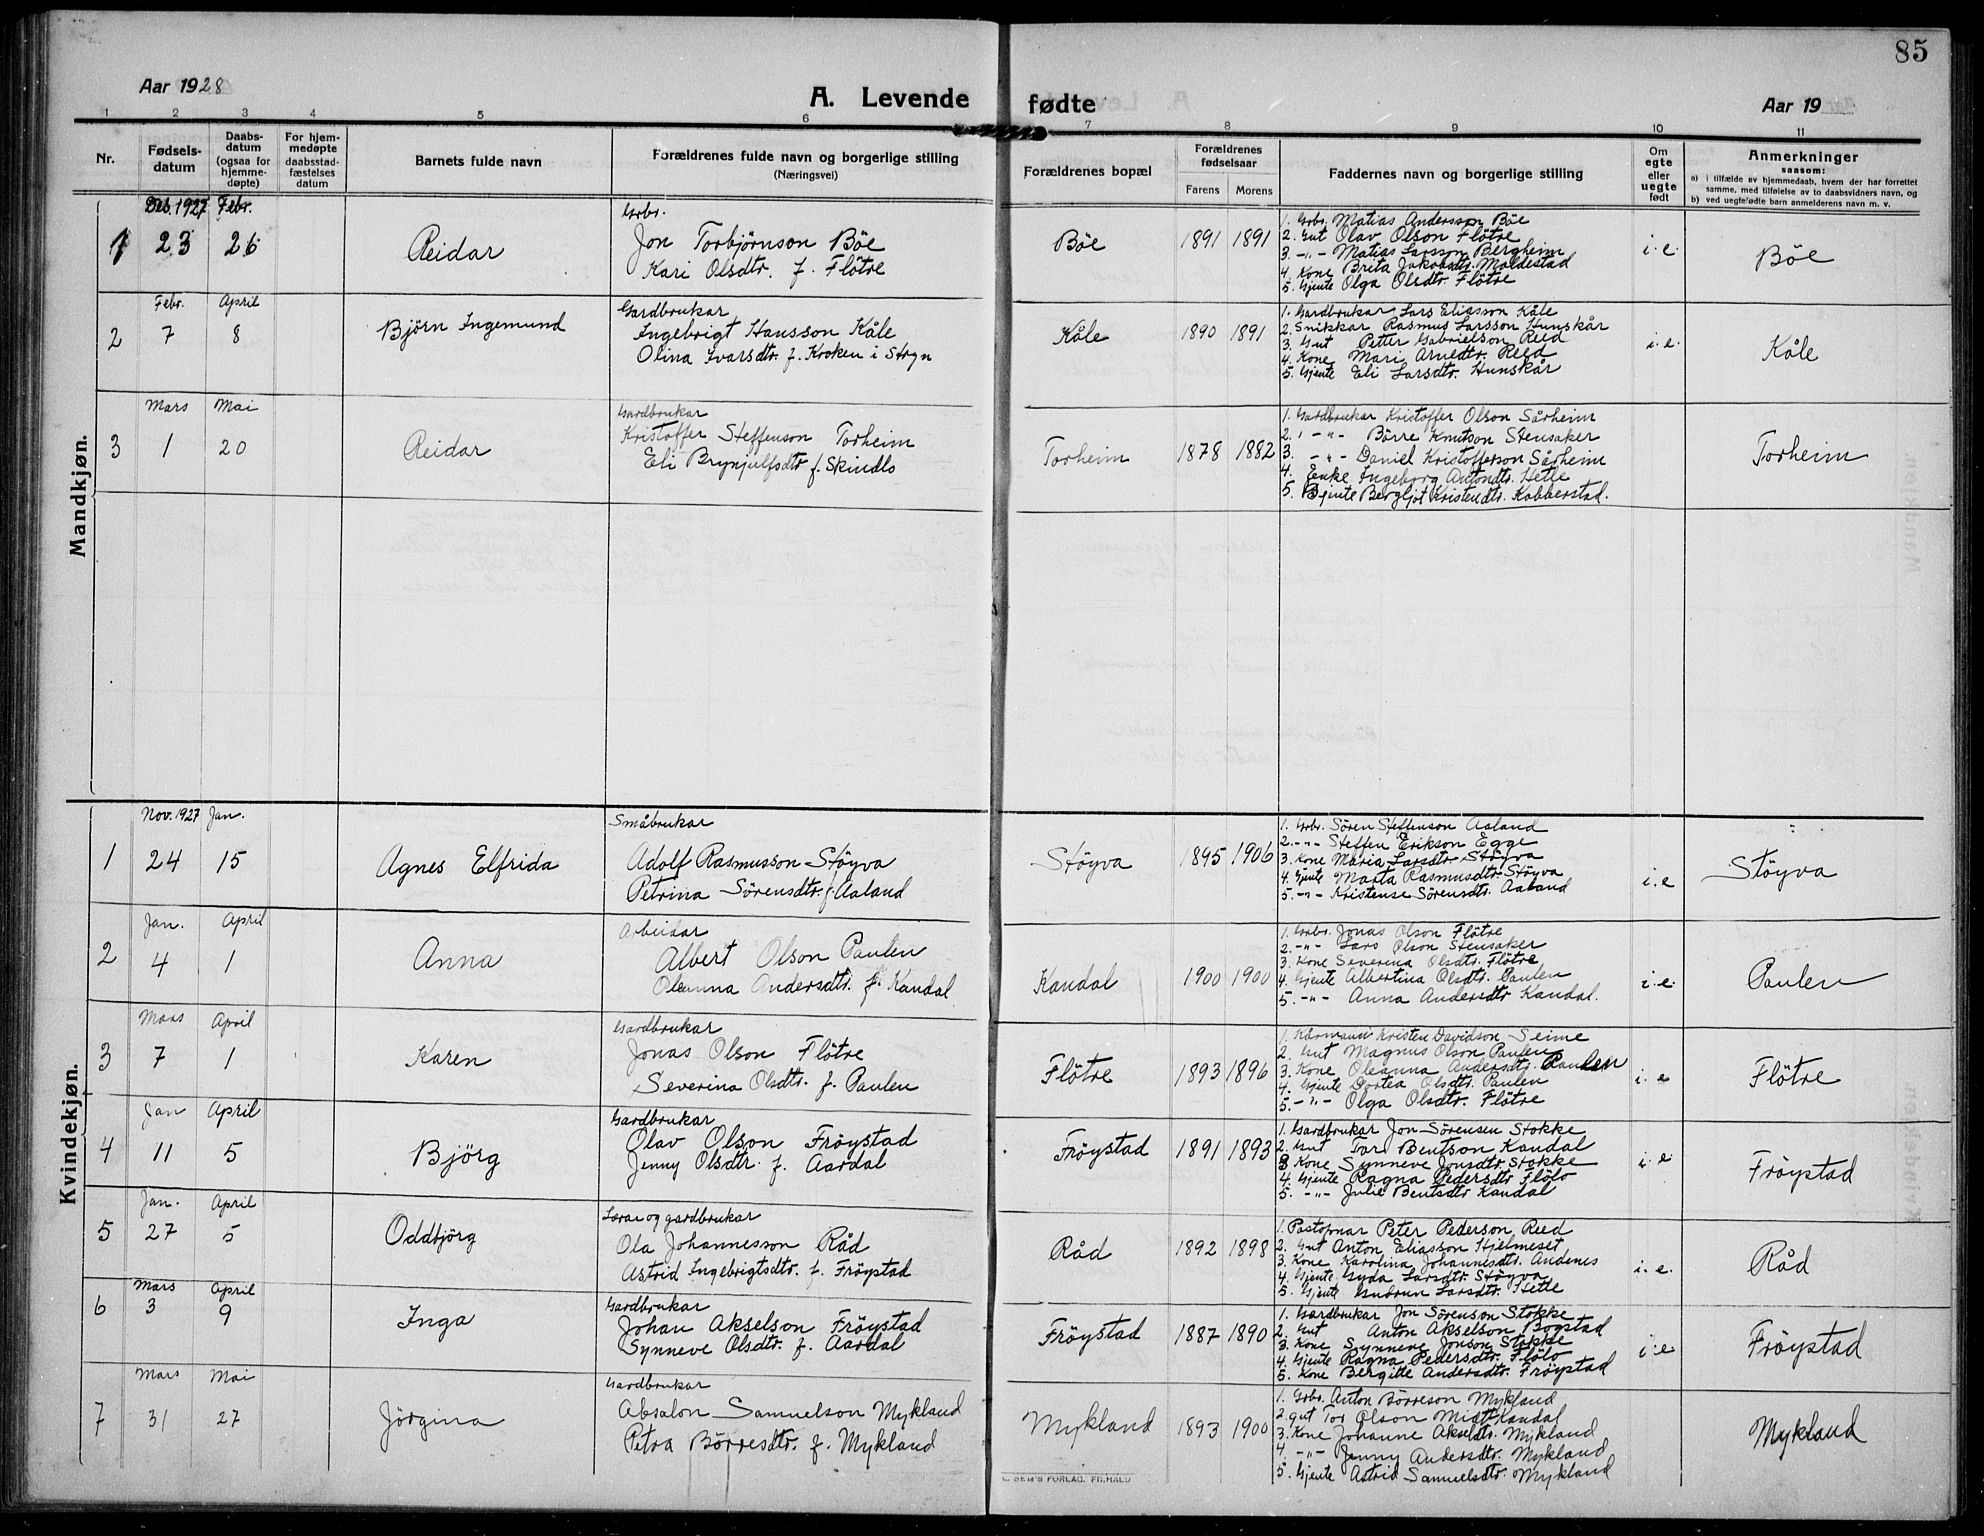 85
Aar 1928
A. Levende fødte
Aar 19
1 2 3 4 5 6 7 8 9 10 11
Nr.
Fødsels-
datum
Daabs-
datum
(ogsaa for
hjemme-
døpte)
For hjem-
medøpte
daabsstad-
fæstelses
datum
Barnets fulde navn
Forældrenes fulde navn og borgerlige stilling
(Næringsvei)
Forældrenes bopæl
Forældrenes
fødselsaar
Farens Morens
Faddernes navn og borgerlige stilling
Om
egte
eller
uegte
født
Anmerkninger
saasom:
a) i tilfælde av hjemmedaab, hvem der har forrettet
samme, med tilføielse av to daabsvidners navn, og
b) ved uegtefødte barn anmelderens navn m. v.
Mandkjøn.
Des. 1927 Febr.
1 23 26
Reidar
Grbr.
Jon Torbjørnson Böe
Kari Olsdtr. f. Flötre
Böe 1891 1891
1. Grbr. Matias Andersson Böe
2. Gut Olav Olson Flötre
3. -"- Matias Larsson Bergheim
4. Kone Brita Jakobsdtr. Moldestad
5. Gjente Olga Olsdtr. Flötre
i. e.
Böe
Febr. April
2 7 8
Björn Ingemund
Gardbrukar
Ingebrigt Hansson Kåle
Olina Ivarsdtr. f. Kroken i Stryn
Kåle 1890 1891
1. Gardbrukar Lars Eliasson Kåle
2. Snikkar Rasmus Larsson Hunskår
3. Gut Petter Gabrielson Reed
4. Kone Mari Arnedtr. Reed
5. Gjente Eli Larsdtr. Hunskår
i. e.
Kåle
Mars Mai
3 1 20
Reidar
Gardbrukar
Kristoffer Steffenson Torheim
Eli Brynjulfsdtr f. Skindlo
Torheim 1878 1882
1. Gardbrukar Kristoffer Olson Sårheim
2. -"- Börre Knutson Stensaker
3. -"- Daniel Kristofferson Sårheim
4. Enke Ingeborg Antondtr. Hetle
5. Gjente Bergljot Kristendtr. Kobberstad.
Torheim
Kvindekjøn.
Nov. 1927 Jan.
1 24 15
Agnes Elfrida
Småbrukar
Adolf Rasmusson Stöyva
Petrina Sörensdtr. f. Aaland
Stöyva 1895 1906
1. Grbr. Sören Steffenson Aaland
2. -"- Steffen Erikson Egge
3. Kone Maria Larsdtr. Stöyva
4. Gjente Marta Rasmusdtr. Stöyva
5. -"- Kristense Sörensdtr. Aaland
i. e
Stöyva
Jan. April
2 4 1
Anna
Arbeidar
Albert Olson Paulen
Oleanna Andersdtr. f. Kandal
Kandal 1900 1900
1. Grbr. Jonas Olson Flötre
2. -"- Lars Olson Stensaker
3. Kone Severina Olsdtr. Flötre
4. Gjente Albertina Olsdtr. Paulen
5. -"- Anna Andersdtr Kandal.
i. e.
Paulen
Mars April
3 7 1
Karen
Gardbrukar
Jonas Olson Flötre
Severina Olsdtr. f. Paulen
Flötre 1893 1896
1. Kårmann Kristen Davidson Seime
2. Gut Magnus Olson Paulen
3. Kone Oleanna Andersdtr. Paulen
4. Gjente Dortea Olsdtr. Paulen
5. -"- Olga Olsdtr. Flötre
i. e
Flötre
Jan April
4 11 5
Björg
Gardbrukar
Olav Olson Fröystad
Jenny Olsdtr. f. Aardal
Fröystad 1891 1893
1. Gardbrukar Jon Sörensen Stokke
2. Gut Tord Bentson Kandal
3 Kone Synneve Jonsdtr. Stokke
4. Gjente Ragna Pedersdtr Flölo
5. -"- Julie Bentsdtr Kandal
i. e.
Fröystad
Jan. April
5 27 5
Oddbjörg
Lærar og gardbrukar
Ola Johannesson Råd
Astrid Ingebrigtsdtr. f. Fröystad
Råd 1892 1898
1. Peter Pederson Reed
2. Gut Anton Eliasson Hjelmeset
3. Kone Karolina Johannesdtr. Andenes
4. Gjente Gyda Larsdtr. Stöyva
5. Gjente Gudrun Larsdtr. Hetle
i. e.
Råd
Mars April
6 3 9
Inga
Gardbrukar
Johan Akselson Fröystad
Synneve Olsdtr. f. Aardal
Fröystad 1887 1890
1. Gardbrukar Jon Sörenson Stokke
2. Gut Anton Akselson Bogstad
3. Kone Synneve Jonson Stokke
4. Gjente Ragna Pedersdtr. Flölo
5. Kone Bergitte Andersdtr. Fröystad
i. e
Fröystad
Mars Mai
7 31 27
Jörgina
Gardbrukar
Absalon Samuelson Mykland
Petra Börresdtr. f. Mykland
Mykland 1893 1900
1. Grbr. Anton Börreson Mykland
2. gut Tor Olson Midt Kandal
3. Kone Johanne Akseldtr. Mykland
4. -"- Jenny Andersdtr. Mykland
5. Gjente Astrid Samuelsdtr. Mykland
Mykland
E. SEM'S FORLAG, FR.HALD